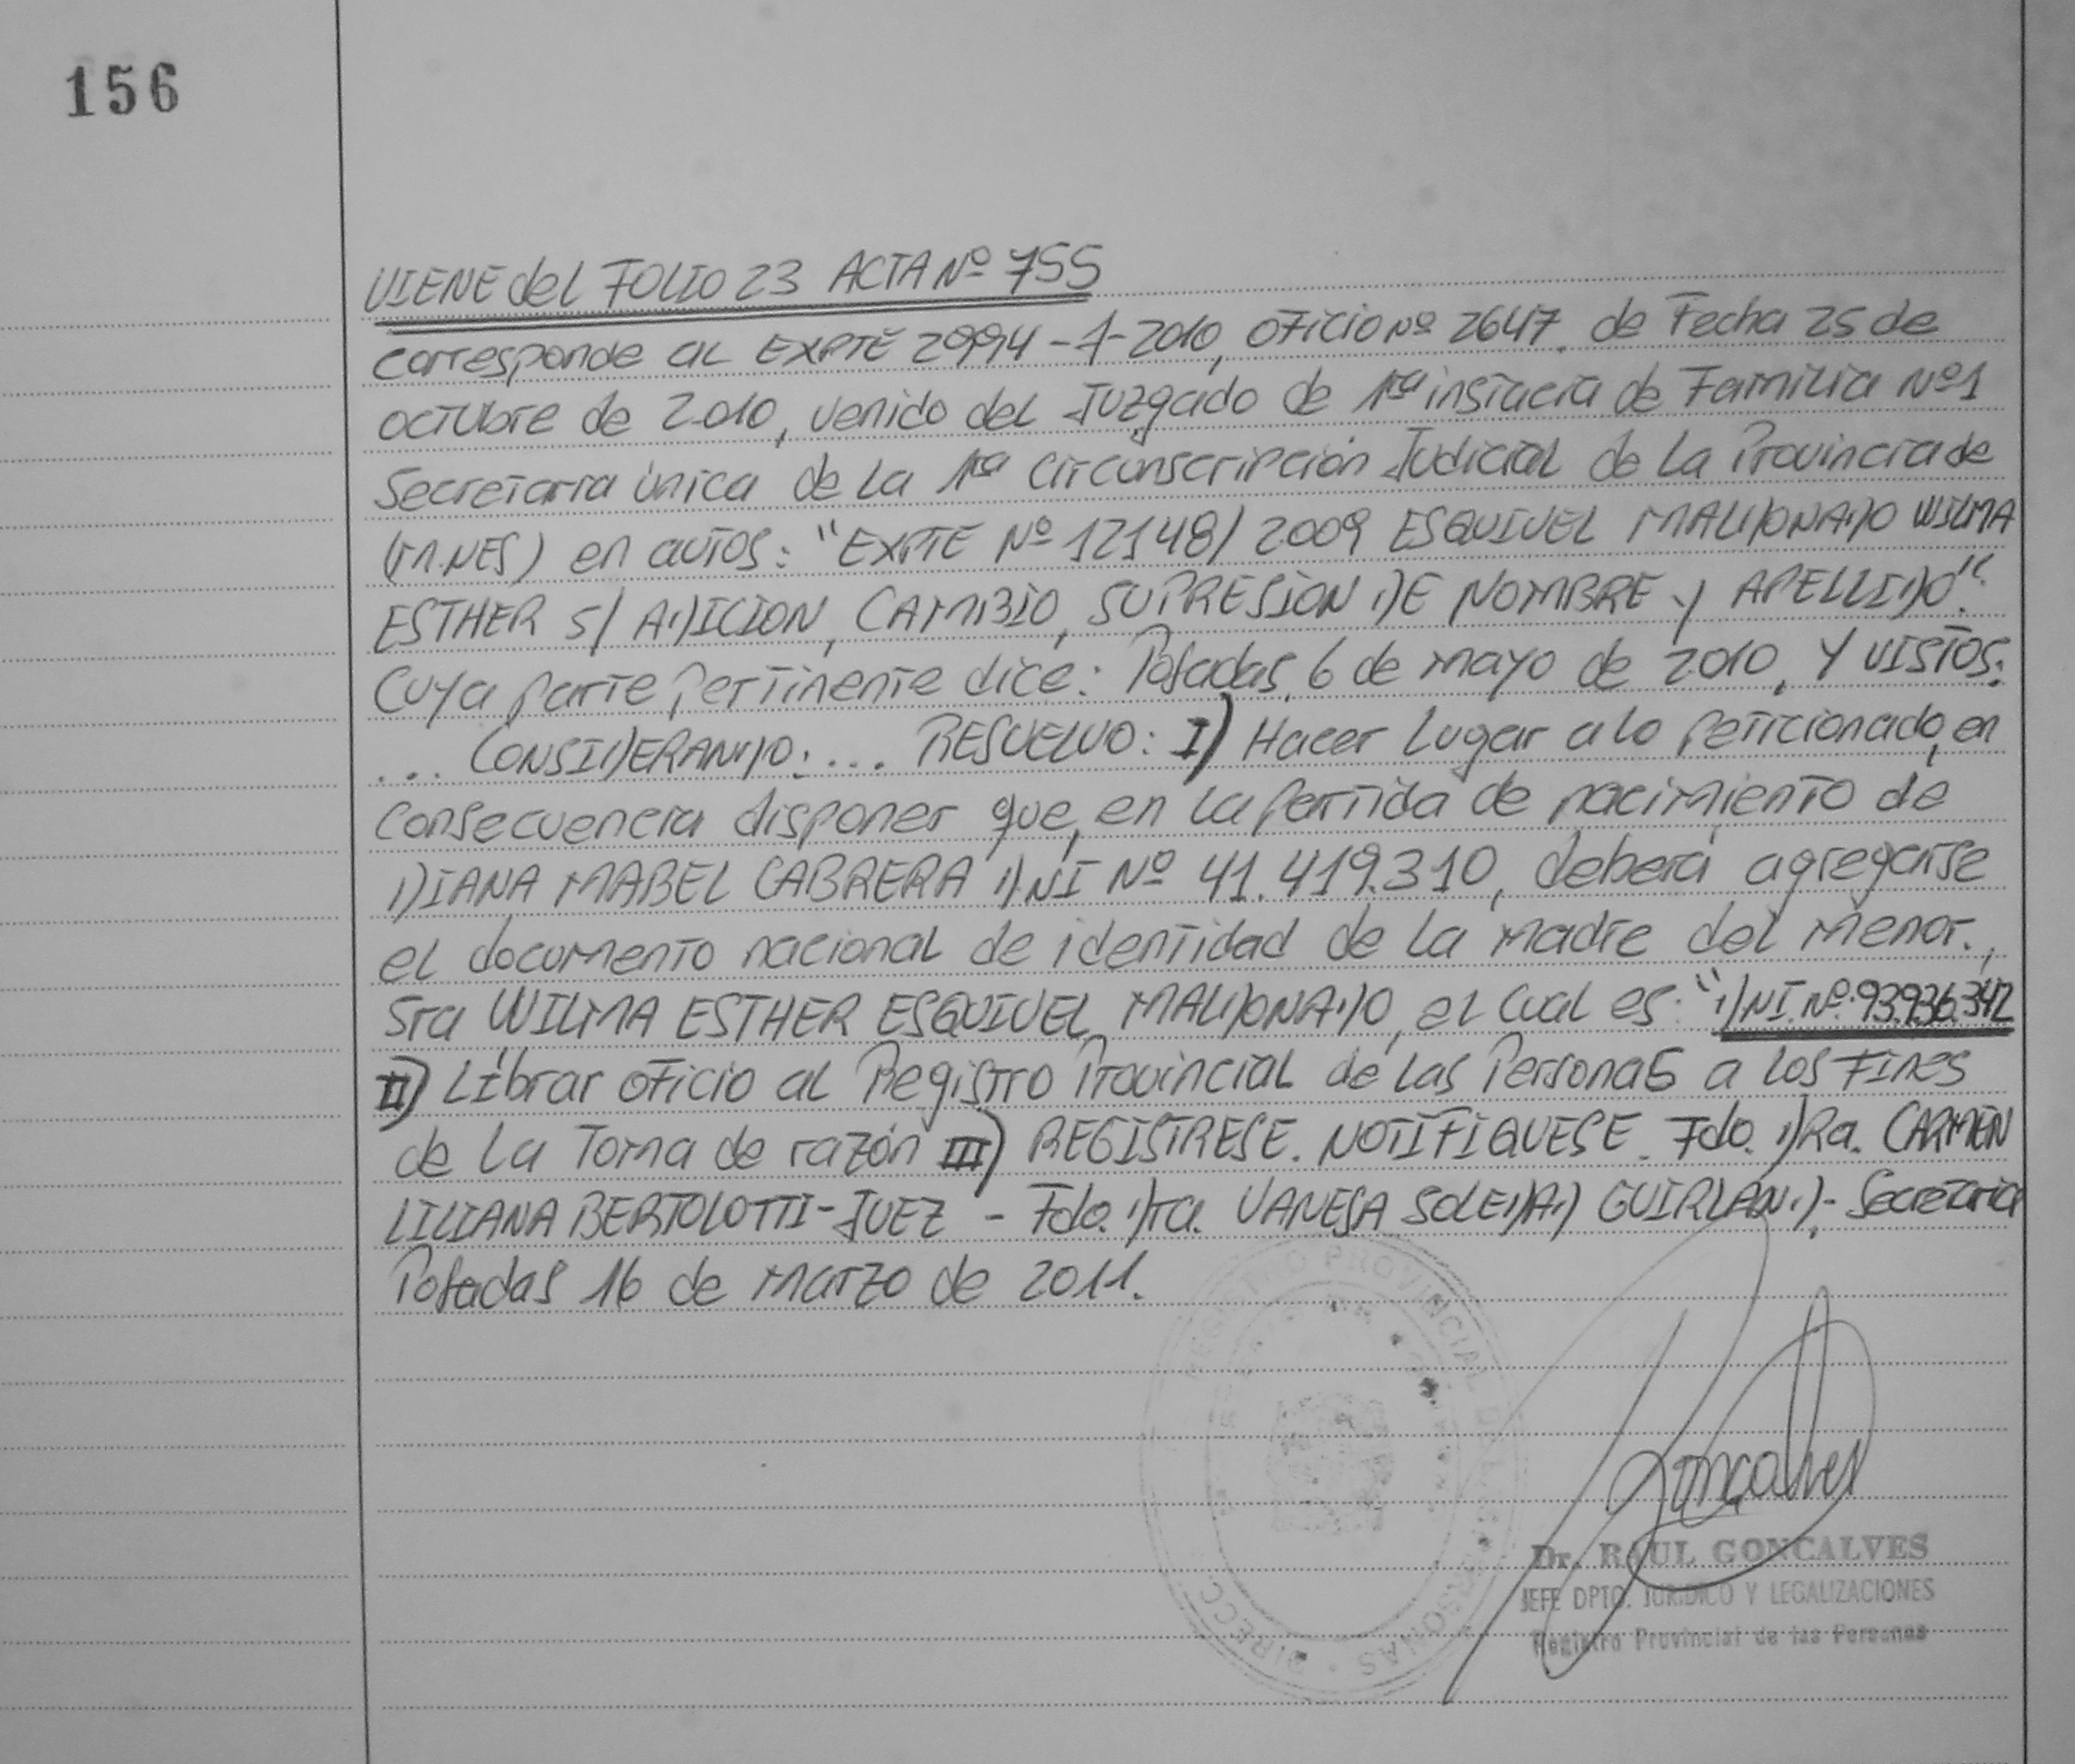 156
VIENE del FOLIO 23 ACTA Nº 755
corresponde al EXPTE 2994-A-2010, oficio nº 2647. de Fecha 25 de
octubre de 2010, venido del Juzgado de 1ra instacia de Familia Nº1
Secretaria única de la 1ra Circunscripción Judicial de la Provincia de
(M.NES) en autos: "EXPTE Nº 12148/2009 ESQUIVEL MALDONADO WILMA
ESTHER S/ ADICION, CAMBIO, SUPRESION DE NOMBRE Y APELLIDO".
Cuya parte pertinente dice: Posadas, 6 de mayo de 2010, Y VISTOS:
... CONSIDERANDO: ... RESUELVO: I) Hacer lugar a lo peticionado, en
consecuencia disponer que, en la partida de nacimiento de
DIANA MABEL CABRERA D.NI Nº 41.419.310, deberá agregarse
el documento nacional de identidad de la madre del menor.,
Sra WILMA ESTHER ESQUIVEL MALDONADO, el cual es: "D.NI. Nº 93.936.342
II) Librar oficio al Registro Provincial de las Personas a los fines
de la Toma de razón III) REGISTRESE. NOTIFIQUESE. Fdo. DRa. CARMEN
LILIANA BERTOLOTTI-JUEZ - Fdo. Dra. VANESA SOLEDAD GUIRLAND.- Secretaria
Posadas 16 de marzo de 2011.
REGISTRO PROVINCIAL DE LAS PERSONAS
Goncalves
Dr. RAUL GONCALVES
JEFE DPTO. JURIDICO Y LEGALIZACIONES
Registro Provincial de las Personas